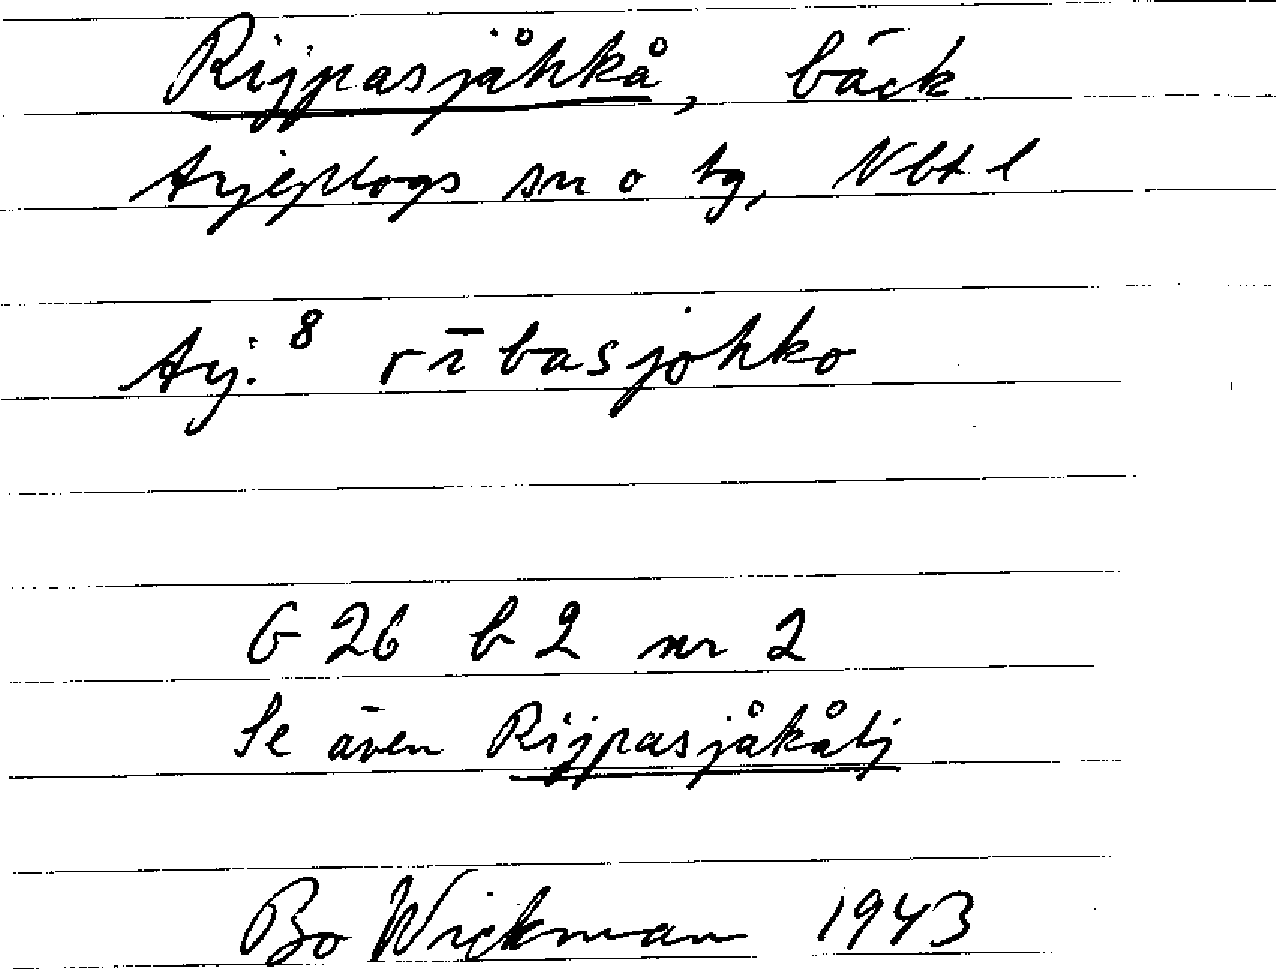 Rijpasjåhkå, bäck
Arjeplogs sn o tg, Nbt l
Arj.⁸ rībasjohko
G 26 b 2 nr 2
Se även Rijpasjåkåtj
Bo Wickman 1943